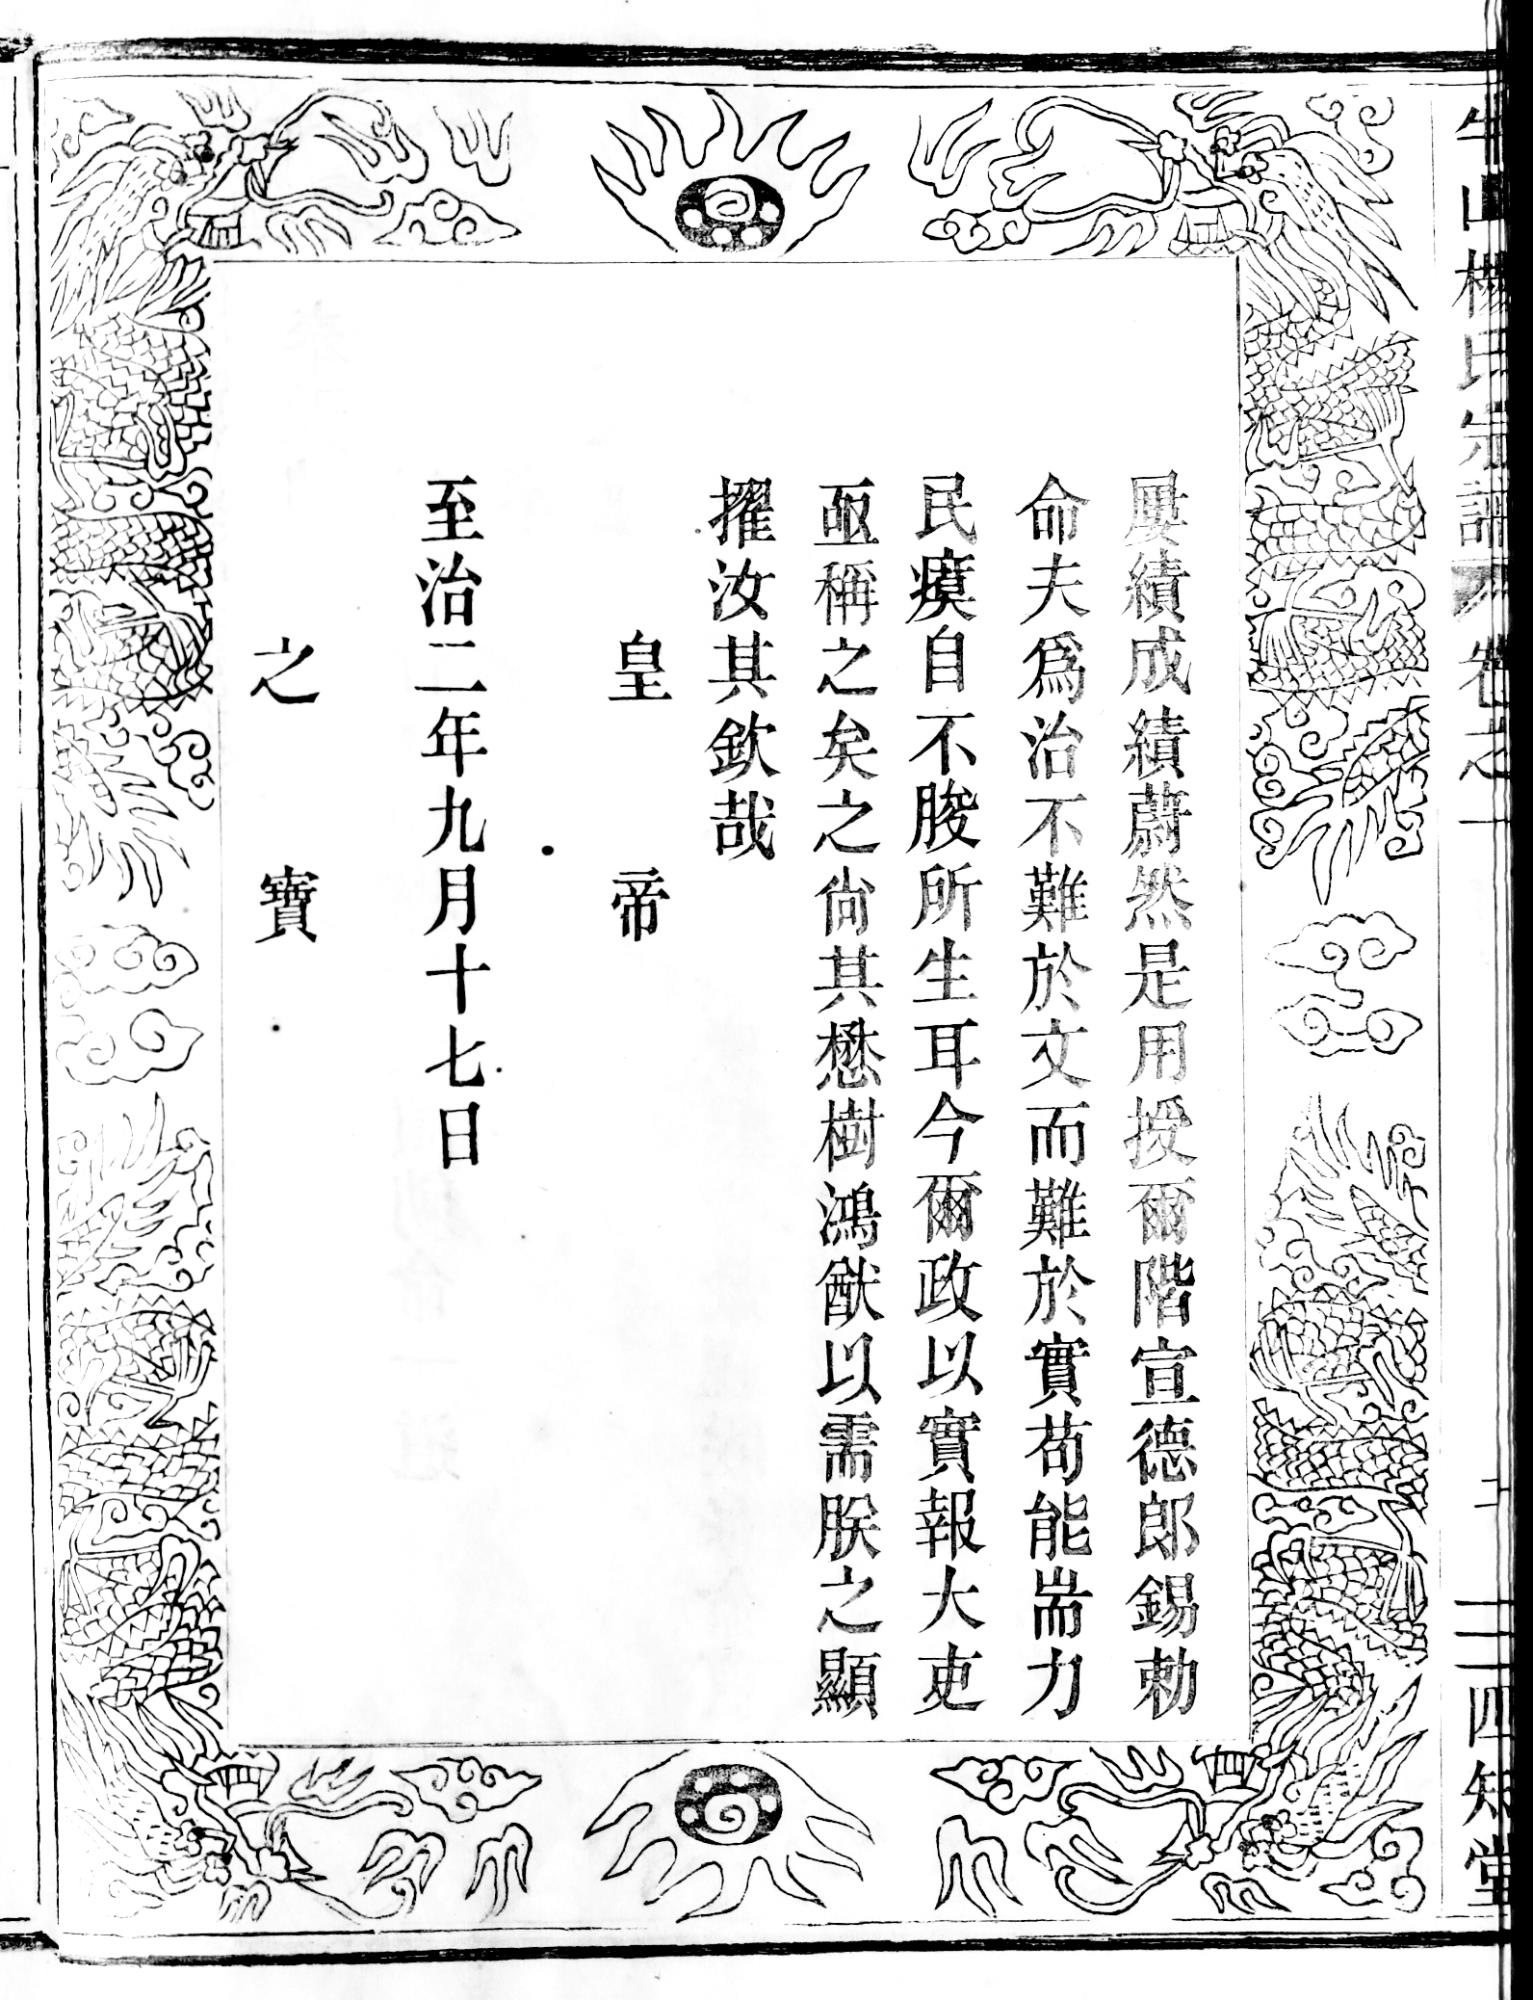 山楊氏宗譜 卷之一 十 四知堂
屢績成績蔚然是用授爾階宣德郎錫勅
命夫爲治不難於文而難於實苟能耑力
民瘼自不朘所生耳今爾政以實報大吏
亟稱之矣之尙其懋樹鴻猷以需朕之顯
擢汝其欽哉
皇帝
至治二年九月十七日
之寶